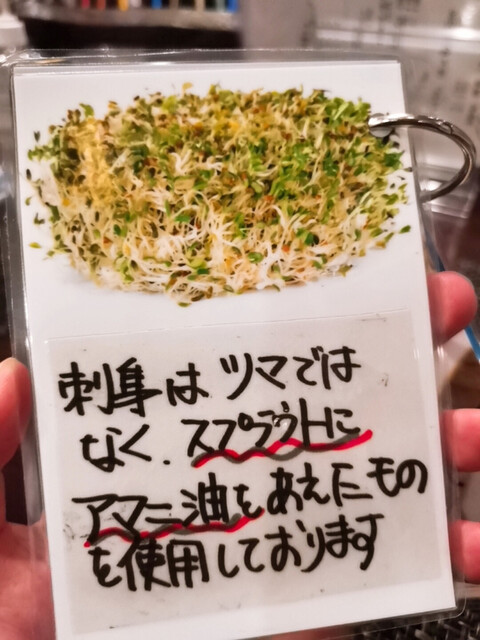 刺身は ツマでは
なく. スプラウトに
アマニ油をあえたもの
を使用しております